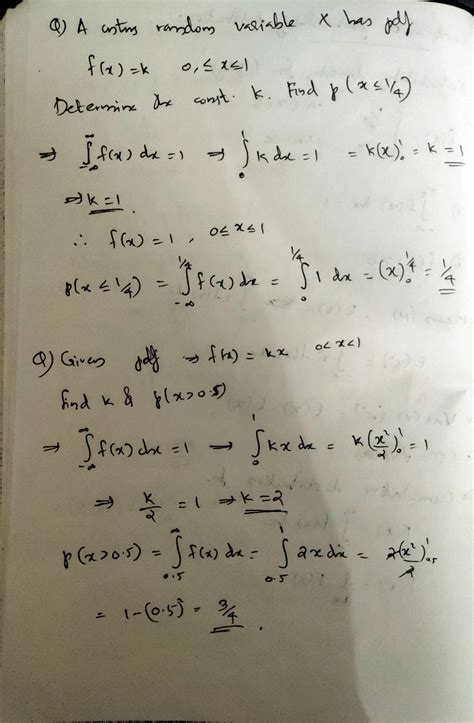 Q) A cntns random variable X has pdf
f(x) = k 0, ≤ x ≤ 1
Determine the const. k. Find p(x ≤ 1/4)
⇒ ∫_{-∞}^{∞} f(x) dx = 1 ⇒ ∫_0^1 k dx = 1 = k(x)_0^1 = k = 1
⇒ k = 1
∴ f(x) = 1, 0 ≤ x ≤ 1
p(x ≤ 1/4) = ∫_{-∞}^{1/4} f(x) dx = ∫_0^{1/4} 1 dx = (x)_0^{1/4} = 1/4
Q) Given pdf → f(x) = kx 0 < x < 1
find k & p(x > 0.5)
⇒ ∫_{-∞}^{∞} f(x) dx = 1 → ∫_0^1 kx dx = k(x²/2)_0^1 = 1
⇒ k/2 = 1 ⇒ k = 2
p(x > 0.5) = ∫_{0.5}^{∞} f(x) dx = ∫_{0.5}^1 2x dx = 2(x²)_{0.5}^1/2
= 1 - (0.5)² = 3/4.